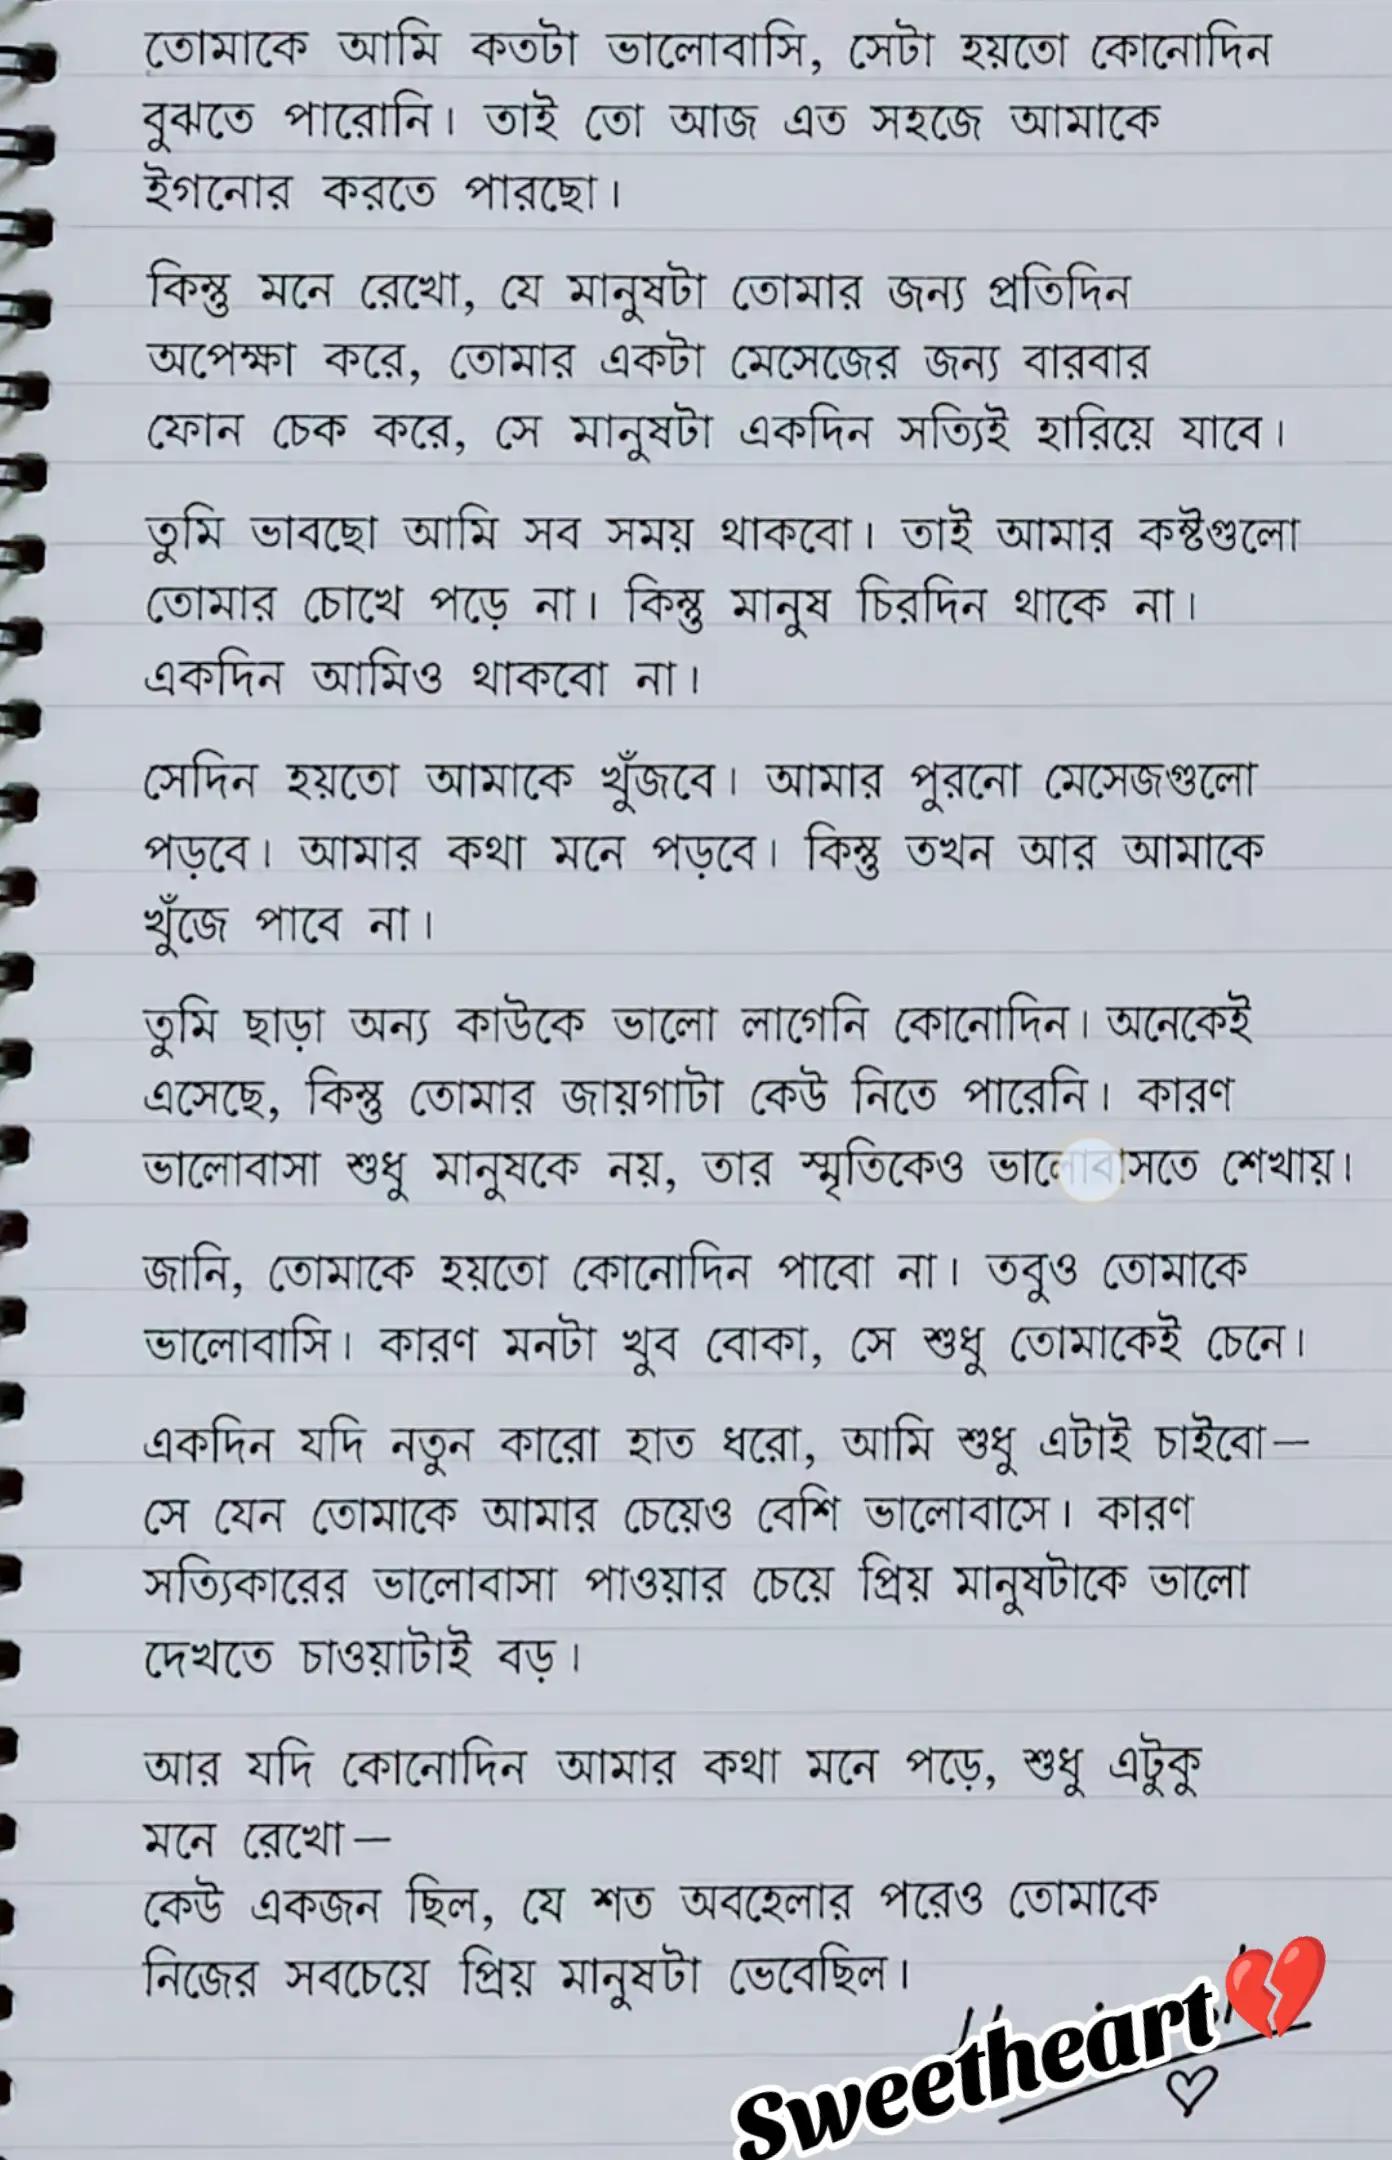 তোমাকে আমি কতটা ভালোবাসি, সেটা হয়তো কোনোদিন
বুঝতে পারোনি। তাই তো আজ এত সহজে আমাকে
ইগনোর করতে পারছো।
কিন্তু মনে রেখো, যে মানুষটা তোমার জন্য প্রতিদিন
অপেক্ষা করে, তোমার একটা মেসেজের জন্য বারবার
ফোন চেক করে, সে মানুষটা একদিন সত্যিই হারিয়ে যাবে।
তুমি ভাবছো আমি সব সময় থাকবো। তাই আমার কষ্টগুলো
তোমার চোখে পড়ে না। কিন্তু মানুষ চিরদিন থাকে না।
একদিন আমিও থাকবো না।
সেদিন হয়তো আমাকে খুঁজবে। আমার পুরনো মেসেজগুলো
পড়বে। আমার কথা মনে পড়বে। কিন্তু তখন আর আমাকে
খুঁজে পাবে না।
তুমি ছাড়া অন্য কাউকে ভালো লাগেনি কোনোদিন। অনেকেই
এসেছে, কিন্তু তোমার জায়গাটা কেউ নিতে পারেনি। কারণ
ভালোবাসা শুধু মানুষকে নয়, তার স্মৃতিকেও ভালোবাসতে শেখায়।
জানি, তোমাকে হয়তো কোনোদিন পাবো না। তবুও তোমাকে
ভালোবাসি। কারণ মনটা খুব বোকা, সে শুধু তোমাকেই চেনে।
একদিন যদি নতুন কারো হাত ধরো, আমি শুধু এটাই চাইবো—
সে যেন তোমাকে আমার চেয়েও বেশি ভালোবাসে। কারণ
সত্যিকারের ভালোবাসা পাওয়ার চেয়ে প্রিয় মানুষটাকে ভালো
দেখতে চাওয়াটাই বড়।
আর যদি কোনোদিন আমার কথা মনে পড়ে, শুধু এটুকু
মনে রেখো—
কেউ একজন ছিল, যে শত অবহেলার পরেও তোমাকে
নিজের সবচেয়ে প্রিয় মানুষটা ভেবেছিল।
Sweetheart💔